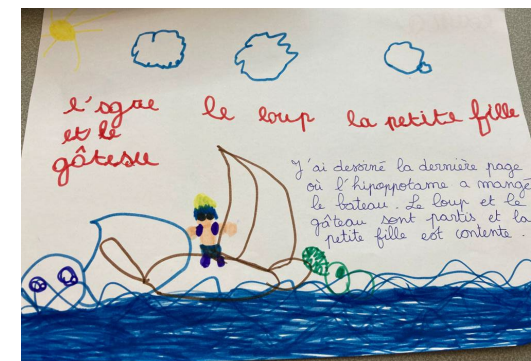 l'ogre
et le
gâteau
le loup
la petite fille
J'ai dessiné la dernière page
où l'hipoppotame a mangé
le bateau. Le loup et le
gâteau sont partis et la
petite fille est contente.